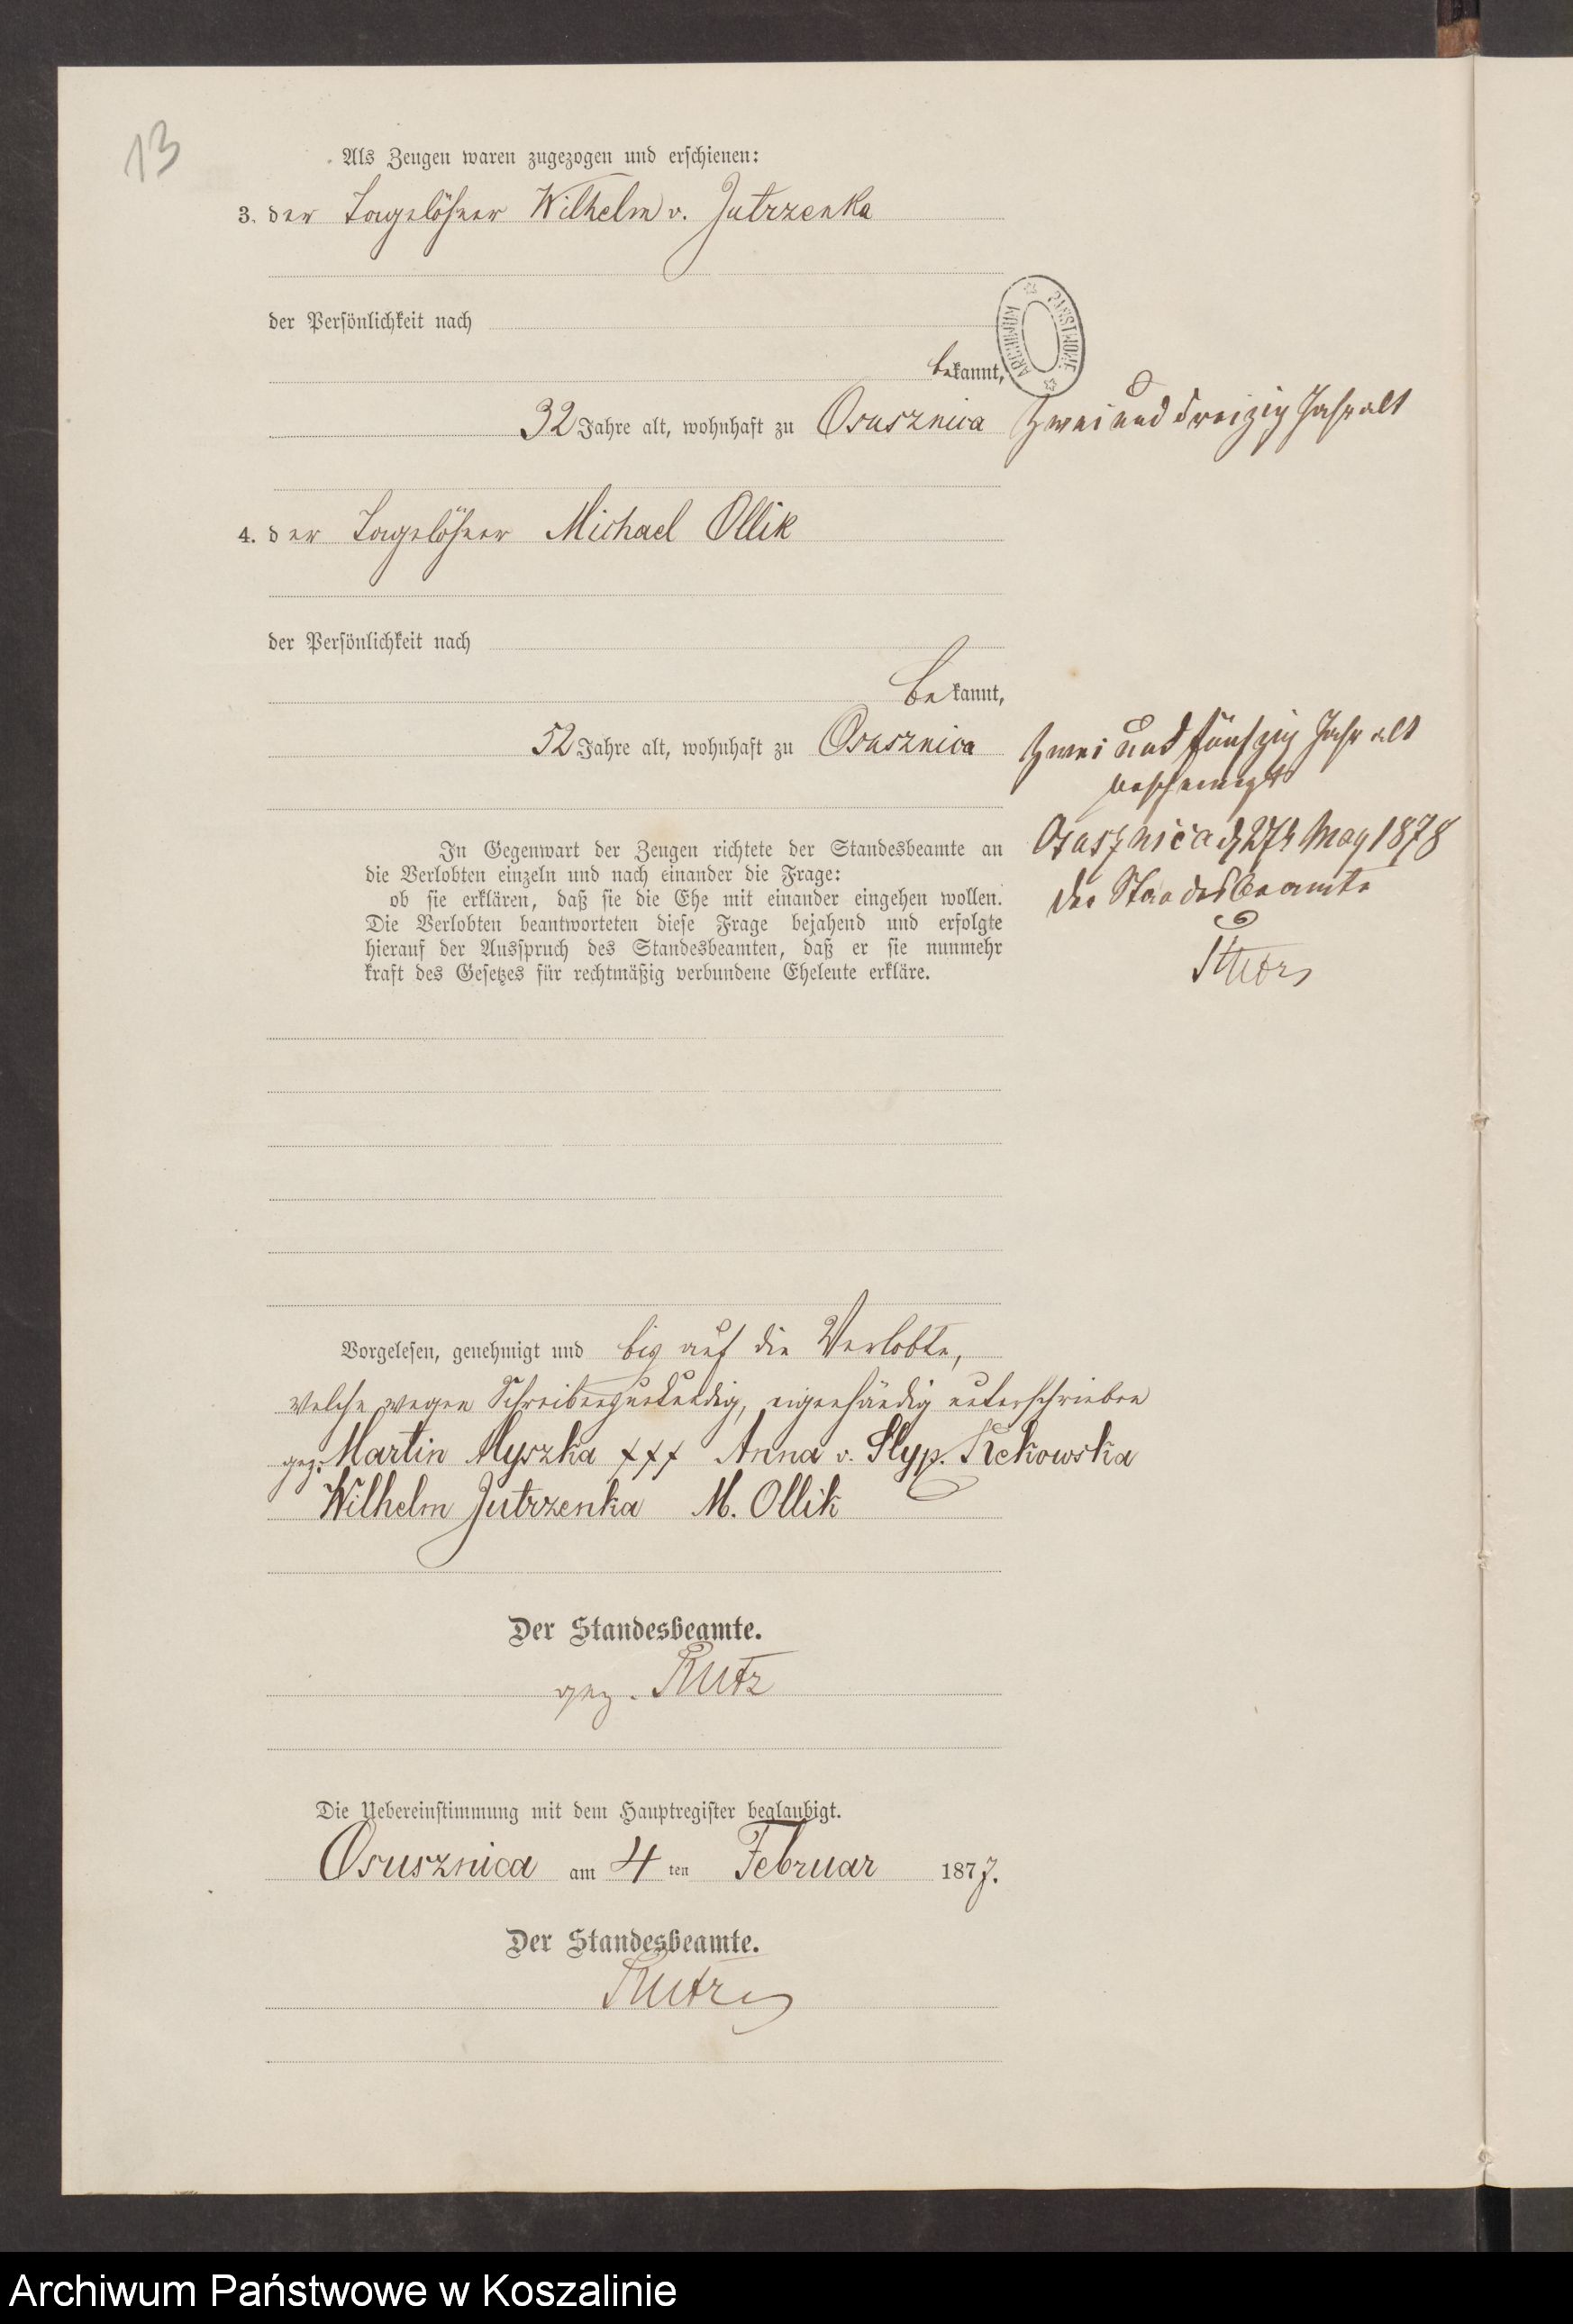 13
Als Zeugen waren zugezogen und erschienen:
3. der Tagelöhner Wilhelm v. Jutrzenka
der Persönlichkeit nach
bekannt,
ARCHIWUM PAŃSTWOWE
32 Jahre alt, wohnhaft zu Osusznica zwei und dreizig Jahr alt
4. der Tagelöhner Michael Ollik
der Persönlichkeit nach
bekannt,
52 Jahre alt, wohnhaft zu Osusznica zwei und fünfzig Jahr alt
bescheinigt
Osusznica d 27t May 1878
Der Standesbeamte
In Gegenwart der Zeugen richtete der Standesbeamte an
die Verlobten einzeln und nach einander die Frage:
ob sie erklären, daß sie die Ehe mit einander eingehen wollen.
Die Verlobten beantworteten diese Frage bejahend und erfolgte
hierauf der Ausspruch des Standesbeamten, daß er sie nunmehr
kraft des Gesetzes für rechtmäßig verbundene Eheleute erkläre.
Vorgelesen, genehmigt und bis auf die Verlobte,
welche wegen Schreibensunkundig, eigenhändig unterschrieben
gez. Martin Myszka +++ Anna v. Styp. Rekowska
Wilhelm Jutrzenka M. Ollik
Der Standesbeamte.
gez. Rutz
Die Uebereinstimmung mit dem Hauptregister beglaubigt.
Osusznica am 4 ten Februar 1877.
Der Standesbeamte.
Rutz
Archiwum Państwowe w Koszalinie